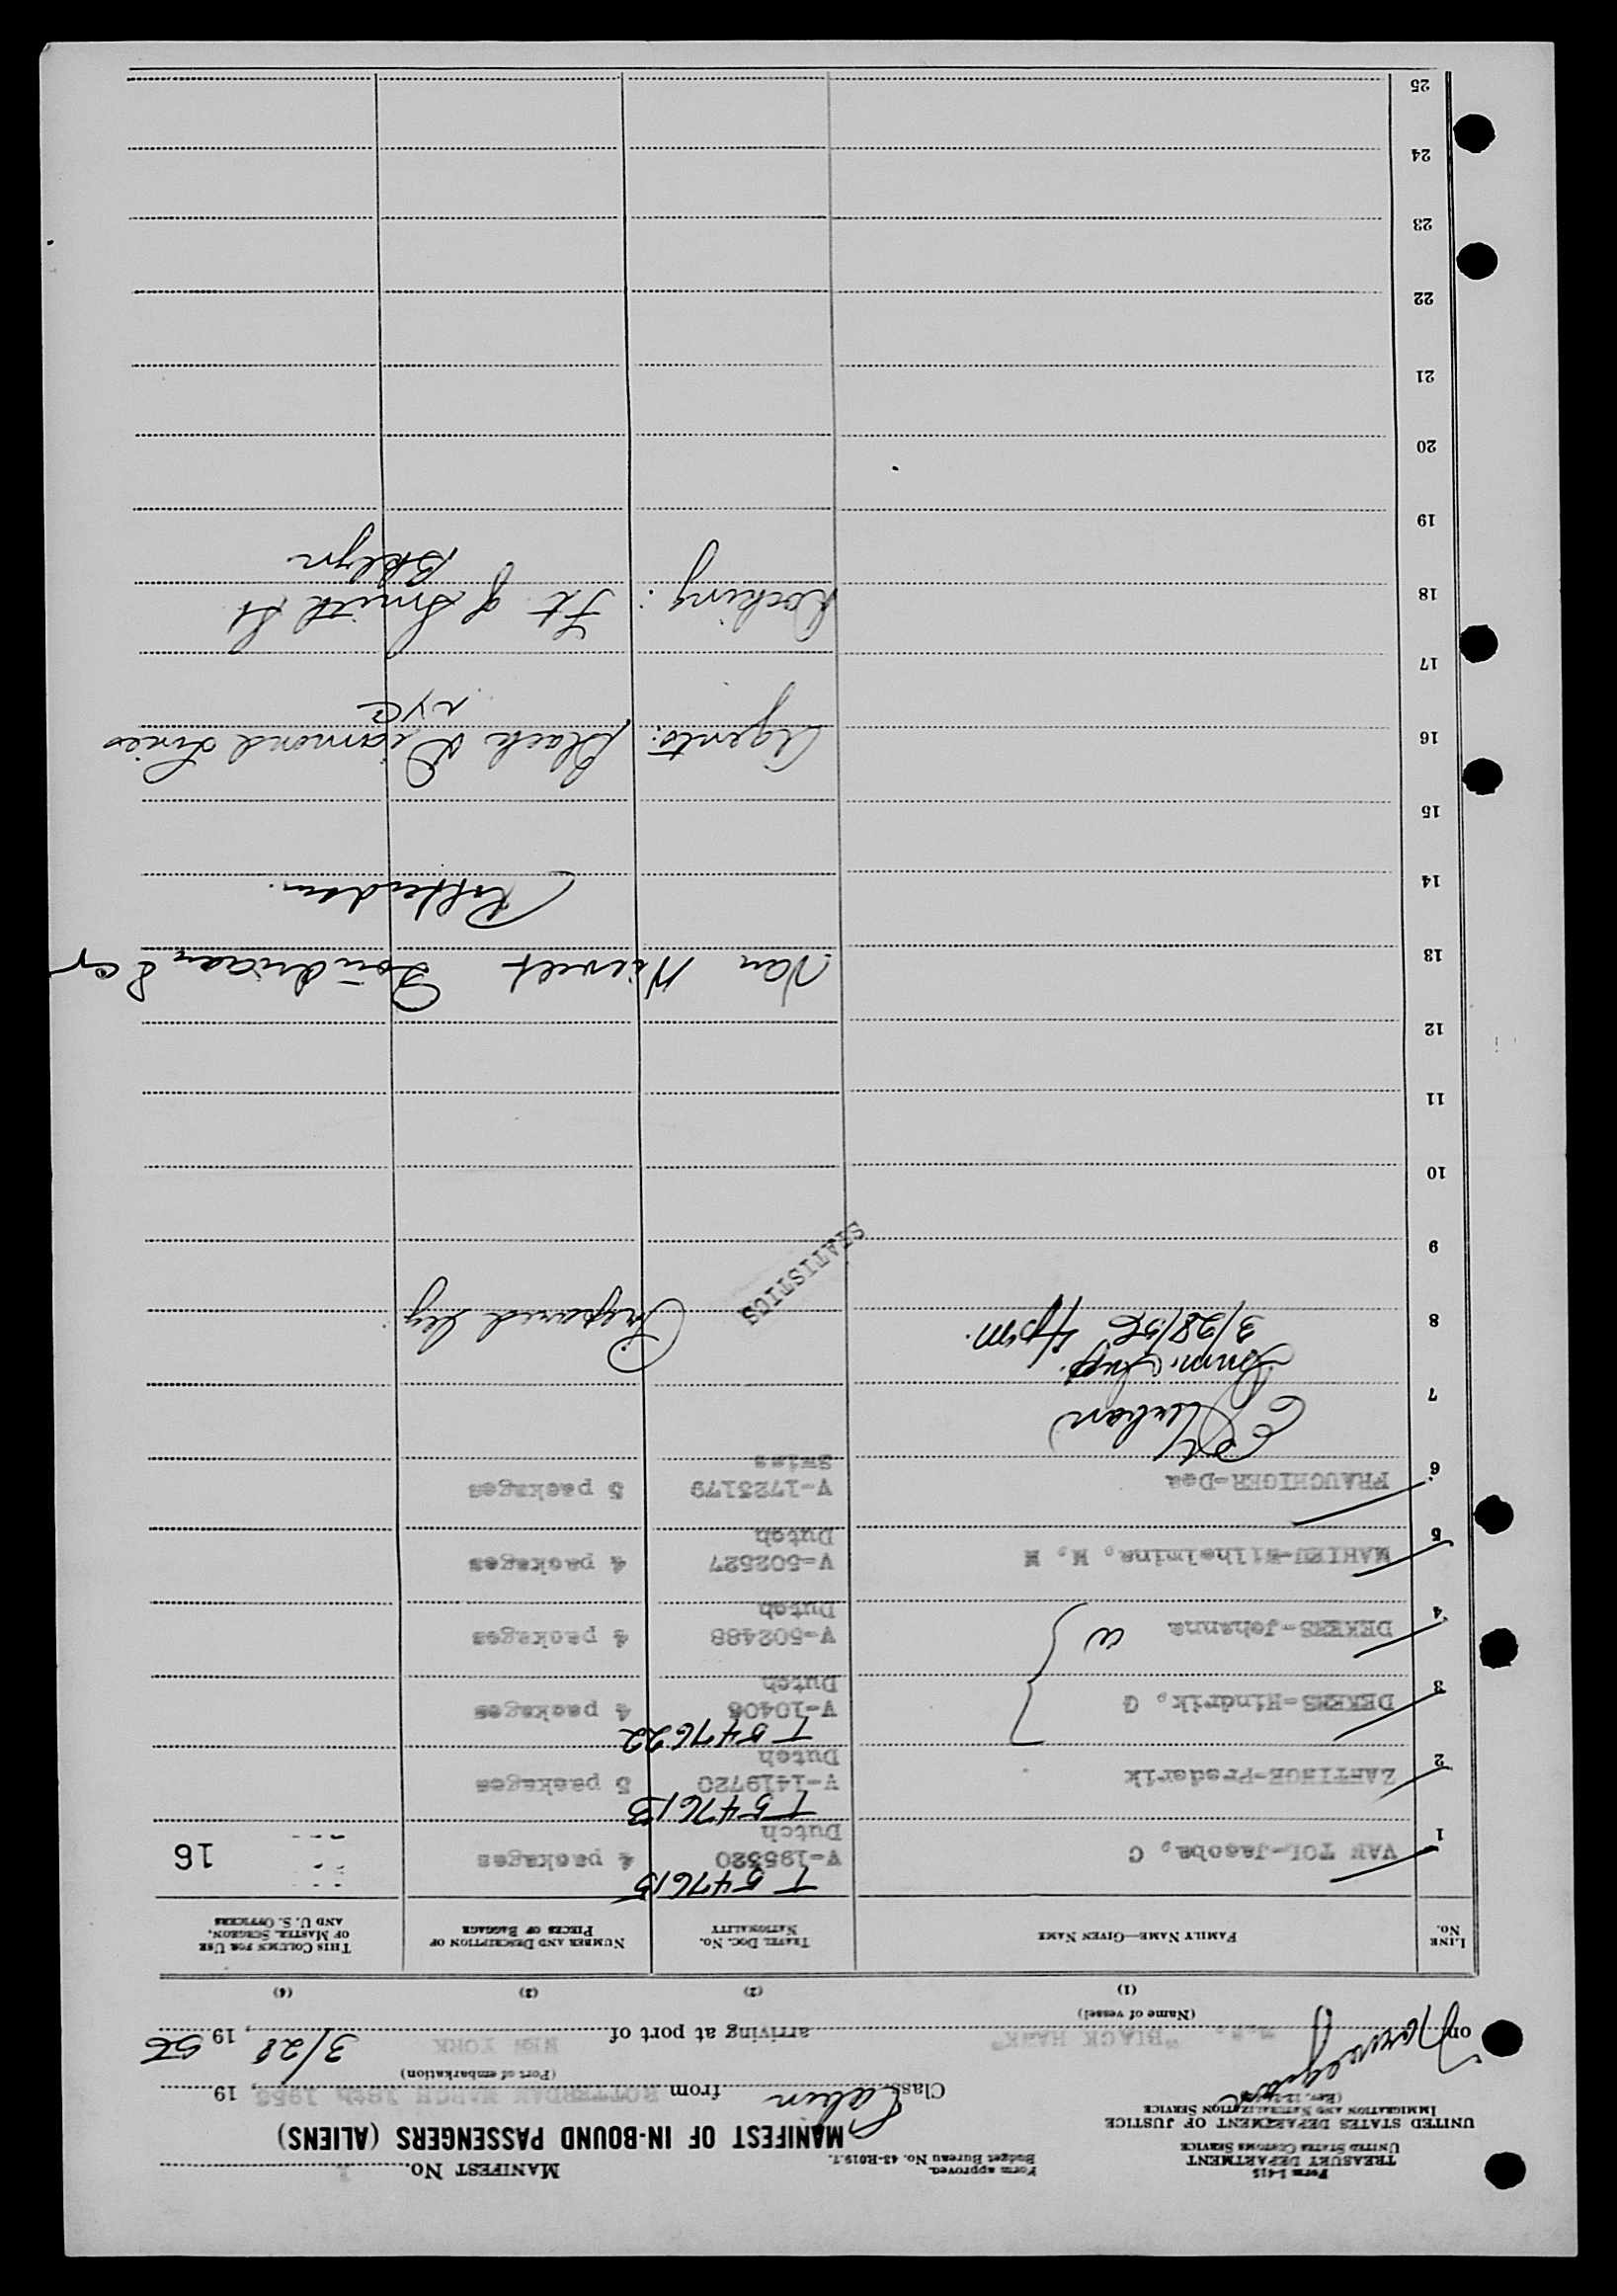 Form I-415
TREASURY DEPARTMENT
UNITED STATES CUSTOMS SERVICE
UNITED STATES DEPARTMENT OF JUSTICE
IMMIGRATION AND NATURALIZATION SERVICE
Form approved.
Budget Bureau No. 43-R019.7.
MANIFEST No. 1
MANIFEST OF IN-BOUND PASSENGERS (ALIENS)
Class Cabin from ROTTERDAM MARCH 18th 1956, 19
(Port of embarkation)
Norwegian
on "BLACK HAWK" arriving at port of NEW YORK 3/28, 1956
(Name of vessel)
(1) (2) (3) (4)
LINE No. FAMILY NAME—GIVEN NAME TRAVEL DOC. No. NATIONALITY NUMBER AND DESCRIPTION OF PIECES OF BAGGAGE THIS COLUMN FOR USE OF MASTER, SURGEON, AND U. S. OFFICERS
T 547615
1 VAN TOL-Jacoba, C V-195320 4 packages 16
Dutch
T 547613
2 ZANTINGE-Frederik V-1419720 5 packages
Dutch
T 547622
3 DEKENS-Hindrik, G V-10406 4 packages
Dutch
4 DEKENS-Johanna W V-502488 4 packages
Dutch
5 MAHIEU-Wilhelmina, M, M V-502527 4 packages
Dutch
6 FRAUCHIGER-Dea V-1725179 5 packages
Swiss
7
Imm. Insp.
3/28/56 4pm.
8 Prepared by:
STATISTICS
9
10
11
12
13 Van Nievelt Goudriaan & Co
14 Rotterdam.
15
16 Agents: Black Diamond Lines
NYC
17
18 Docking: Ft of Smith St
Bklyn
19
20
21
22
23
24
25